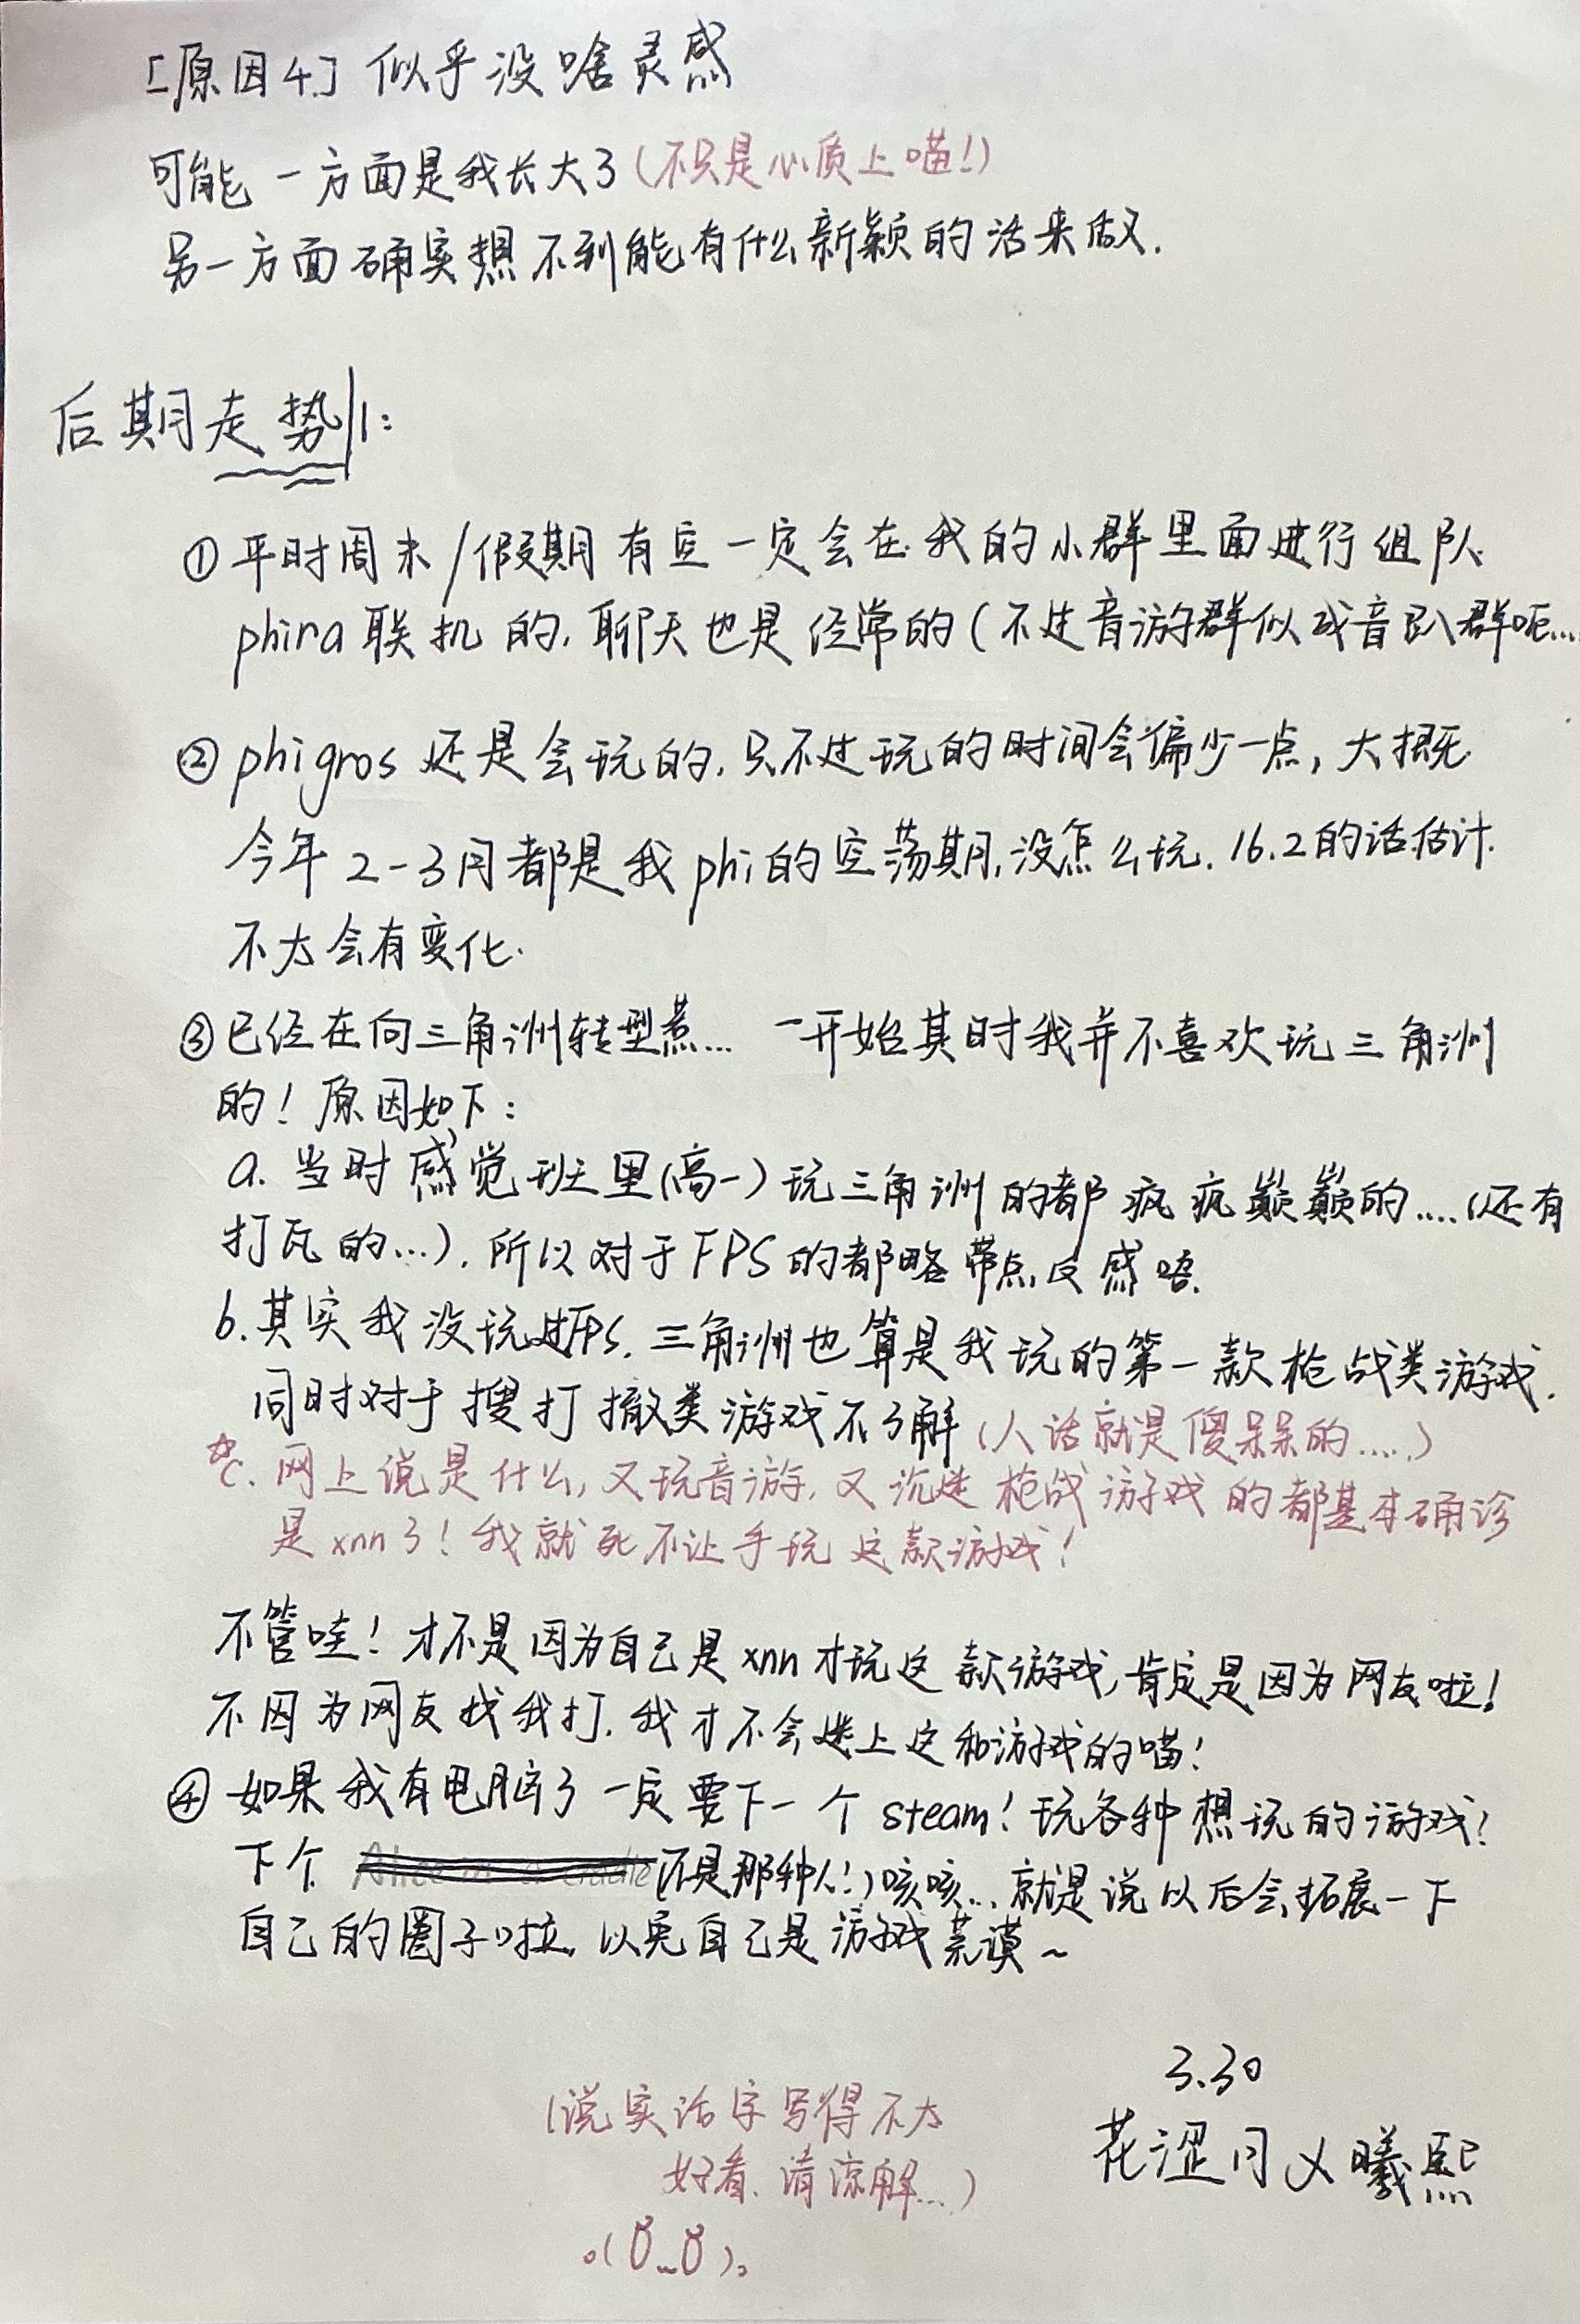 [原因4] 似乎没啥灵感
可能一方面是我长大了(不只是心质上喵!)
另一方面确实想不到能有什么新颖的活来做.
后期走势:
①平时周末/假期有空一定会在我的小群里面进行组队
phira联机的,聊天也是经常的(不过音游群似成音趴群呃...
②phigros还是会玩的,只不过玩的时间会偏少一点,大概
今年2-3月都是我phi的空荡期,没怎么玩.16.2的话估计
不太会有变化.
③已经在向三角洲转型惹... 一开始其时我并不喜欢玩三角洲
的!原因如下:
a.当时感觉班里(高一)玩三角洲的都疯疯巅巅的....(还有
打瓦的...),所以对于FPS的都略带点反感唔.
b.其实我没玩过FPS,三角洲也算是我玩的第一款枪战类游戏.
同时对于搜打撤类游戏不了解(人话就是傻呆呆的....)
☆c.网上说是什么,又玩音游,又沉迷枪战游戏的都基本确诊
是xnn了!我就死不让手玩这款游戏!
不管哇!才不是因为自己是xnn才玩这款游戏,肯定是因为网友啦!
不因为网友找我打,我才不会迷上这种游戏的喵!
④如果我有电脑了一定要下一个steam!玩各种想玩的游戏!
下个 Alice in a cradle(不是那种人!)咳咳...就是说以后会拓展一下
自己的圈子啦,以免自己是游戏荒漠~
3.30
花涩月乂曦熙
(说实话字写得不太
好看,清凉解...)
。(Ŏ_Ŏ)。